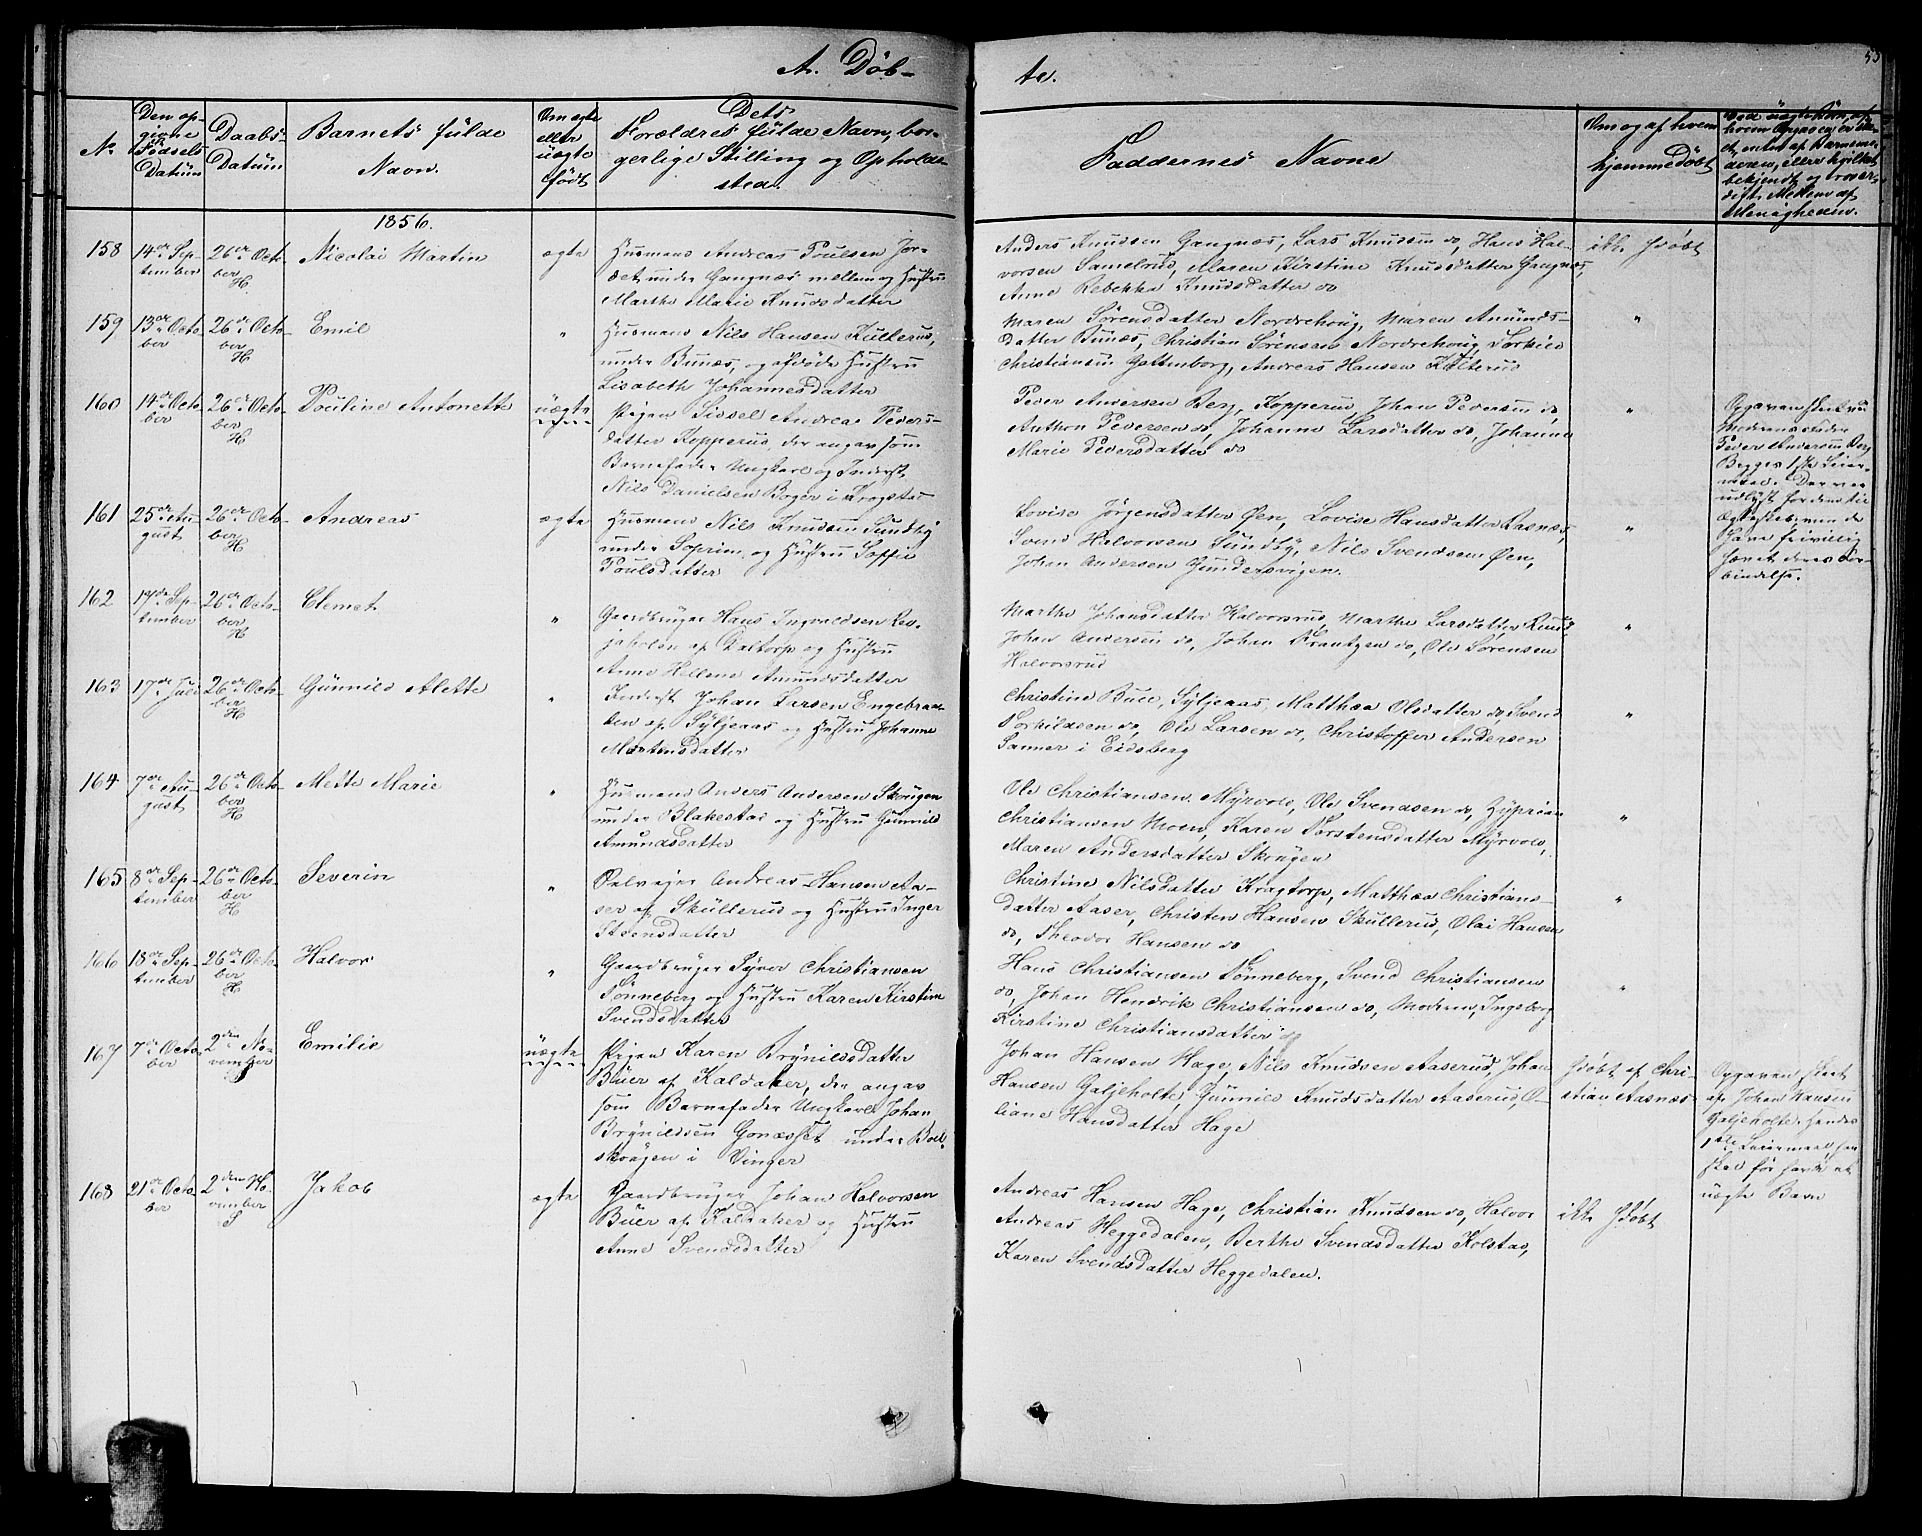 A. Døb-
te.
53
No
Den op-
givne
Fødsels
Datum
Daabs-
Datum
Barnets fulde
Navn.
Om ægte
eller
uægte
født
Dets
Forældres fulde Navn, bor-
gerlige Stilling og Opholds-
sted.
Faddernes Navne
Om og af hvem
hjemmedøbt
1856.
158
14de Sep-
tember
26de Octo-
ber
H.
Nicolai Martin
ægte
Husmand Andreas Poulsen Jor-
det under Gangnæs mellem og Hustru
Marthe Marie Knudsdatter
Anders Knudsen Gangnæs, Lars Knudsen do, Hans Hal-
vorsen Samelrud, Maren Kirstine Knudsdatter Gangnæs,
Anne Rebekka Knudsdatter do
ikke hdøbt
159
13de Octo-
ber
26de Octo-
ber
H
Emil
"
Husmand Nils Hansen Kullerud,
under Bunæs, og afdøde Hustru
Lisabeth Johannesdatter
Maren Sørensdatter Nordrehoug, Maren Amunds-
datter Bunæs, Christian Sørensen Nordrehoug, Torkild
Christiansen Gattenborg, Andreas Hansen Kølterud
"
160
14de Octo-
ber
26de Octo-
ber
H
Pouline Antonette
uægte
Pigen Sissel Andreas Peders-
datter Kopperud, der angav som
Barnefader Ungkarl og Inderst
Nils Danielsen Boger i Krogstad
Peder Andersen Berg, Kopperud, Johan Pedersen do,
Anthon Pedersen do, Johanne Larsdatter do, Johanne
Marie Pedersdatter do
"
Opgaven skeet ved
Moderens Fader
Peder Andersen Berg
Begges 1ste Leier-
maal. Der var
udlyst for dem til
Ægteskab, men de
have frivillig
hævet deres For-
bindelse.
161
25de Au-
gust
26de Octo-
ber
H
Andreas
ægte
Husmand Nils Knudsen Sundby
under Soprim, og Hustru Soffie
Poulsdatter
Lovise Jørgensdatter Øen, Lovise Hansdatter Rasnæs,
Svend Halvorsen Sundby, Nils Svendsen Øen,
Johan Andersen Gundersvigen.
"
162
17de Sep-
tember
26de Octo-
ber
H
Clemet
"
Gaardbruger Hans Ingvaldsen Rev-
jeholen af Daltorp og Hustru
Anne Hellene Amundsdatter
Marthe Johansdatter Halvorsrud, Marthe Larsdatter Ruud,
Johan Andersen do, Johan Frantzen do, Ole Sørensen
Halvorsrud
"
163
17de Juli
26de Octo-
ber
H
Gunnild Alette
"
Inderst Johan Larsen Engebraa-
ten af Syljeaas og Hustru Johanne
Mortensdatter
Christine Buce, Syljeaas, Matthea Olsdatter do, Svend
Torkildsen do, Ole Larsen do, Christoffer Andersen
Sanner i Eidsberg
"
164
7de Au-
gust
26de Octo-
ber
H
Mette Marie
"
Husmand Anders Andersen Skougen
under Blakestad og Hustru Gunnild
Amundsdatter
Ole Christiansen Myrvold, Ole Svendsen do, Zyprian
Christiansen Moen, Karen Torstensdatter Myrvold,
Maren Andersdatter Skougen
"
165
8de Sep-
tember
26de Octo-
ber
H
Severin
"
Selveier Andreas Hansen Aa-
ser af Skullerud og Hustru Inger
Steensdatter
Christine Nilsdatter Kragtorp, Matthea Christians-
datter Aaser, Christen Hansen Skullerud, Olai Hansen
do, Theodor Hansen do
"
166
18de Sep-
tember
26de Octo-
ber
H
Halvor
"
Gaardbruger Syver Christiansen
Tønneberg og Hustru Karen Kirstine
Svendsdatter
Hans Christiansen Tønneberg, Svend Christiansen
do, Johan Hendrik Christiansen do, Moderen, Ingeborg
Kirstine Christiansdatter do
"
167
7de Octo-
ber
2den No-
vember
S
Emilie
uægte
Pigen Karen Brynildsdatter
Buer af Kaldaker, der angav
som Barnefader Ungkarl Johan
Brynildsen Gonæsset under Bol-
skougen i Vinger
Johan Hansen Hage, Nils Knudsen Aaserud, Johan
Hansen Galjeholte, Gunnild Knudsdatter Aaserud, O-
liane Hansdatter Hage
hdøbt af Chri-
stian Aasnæs
Opgaven skeet
af Johan Hansen
Galjeholte. Hendes
1ste Leiermaal, han
skal før havt et
uægte Barn
168
21de Octo-
ber
2den No-
vember
S
Jakob
ægte
Gaardbruger Johan Halvorsen
Buer af Kaldaker og Hustru
Anne Svendsdatter
Andreas Hansen Hage, Christian Knudsen do, Halvor
Andreas Heggedalen, Berthe Svendsdatter Kolstad,
Karen Svendsdatter Heggedalen.
ikke hdøbt